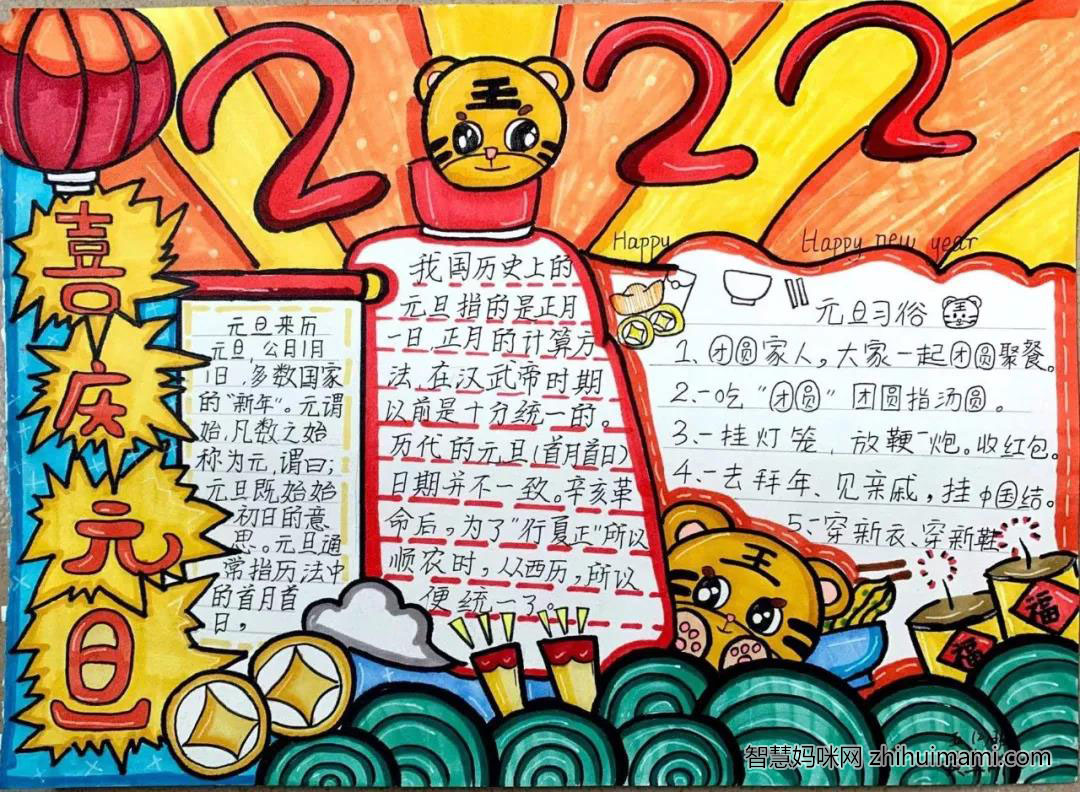 2022
王
喜庆元旦
Happy
Happy new year
元旦来历
元旦,公月1月
1日,多数国家
的“新年”。元谓
始,凡数之始
称为元,谓曰;
元旦既始始
初日的意
思。元旦通
常指历法中
的首月首
日,
我国历史上的
元旦指的是正月
一日,正月的计算方
法,在汉武帝时期
以前是十分统一的。
历代的元旦(首月首日)
日期并不一致。辛亥革
命后,为了“行夏正”所以
顺农时,从西历,所以
便统一了。
元旦习俗
王
1、团圆家人,大家一起团圆聚餐。
2.-吃“团圆”团圆指汤圆。
3.-挂灯笼,放鞭炮。收红包
4.-去拜年、见亲戚,挂中国结。
5.-穿新衣、穿新鞋
王
福
福
智慧妈咪网 zhihuimami.com